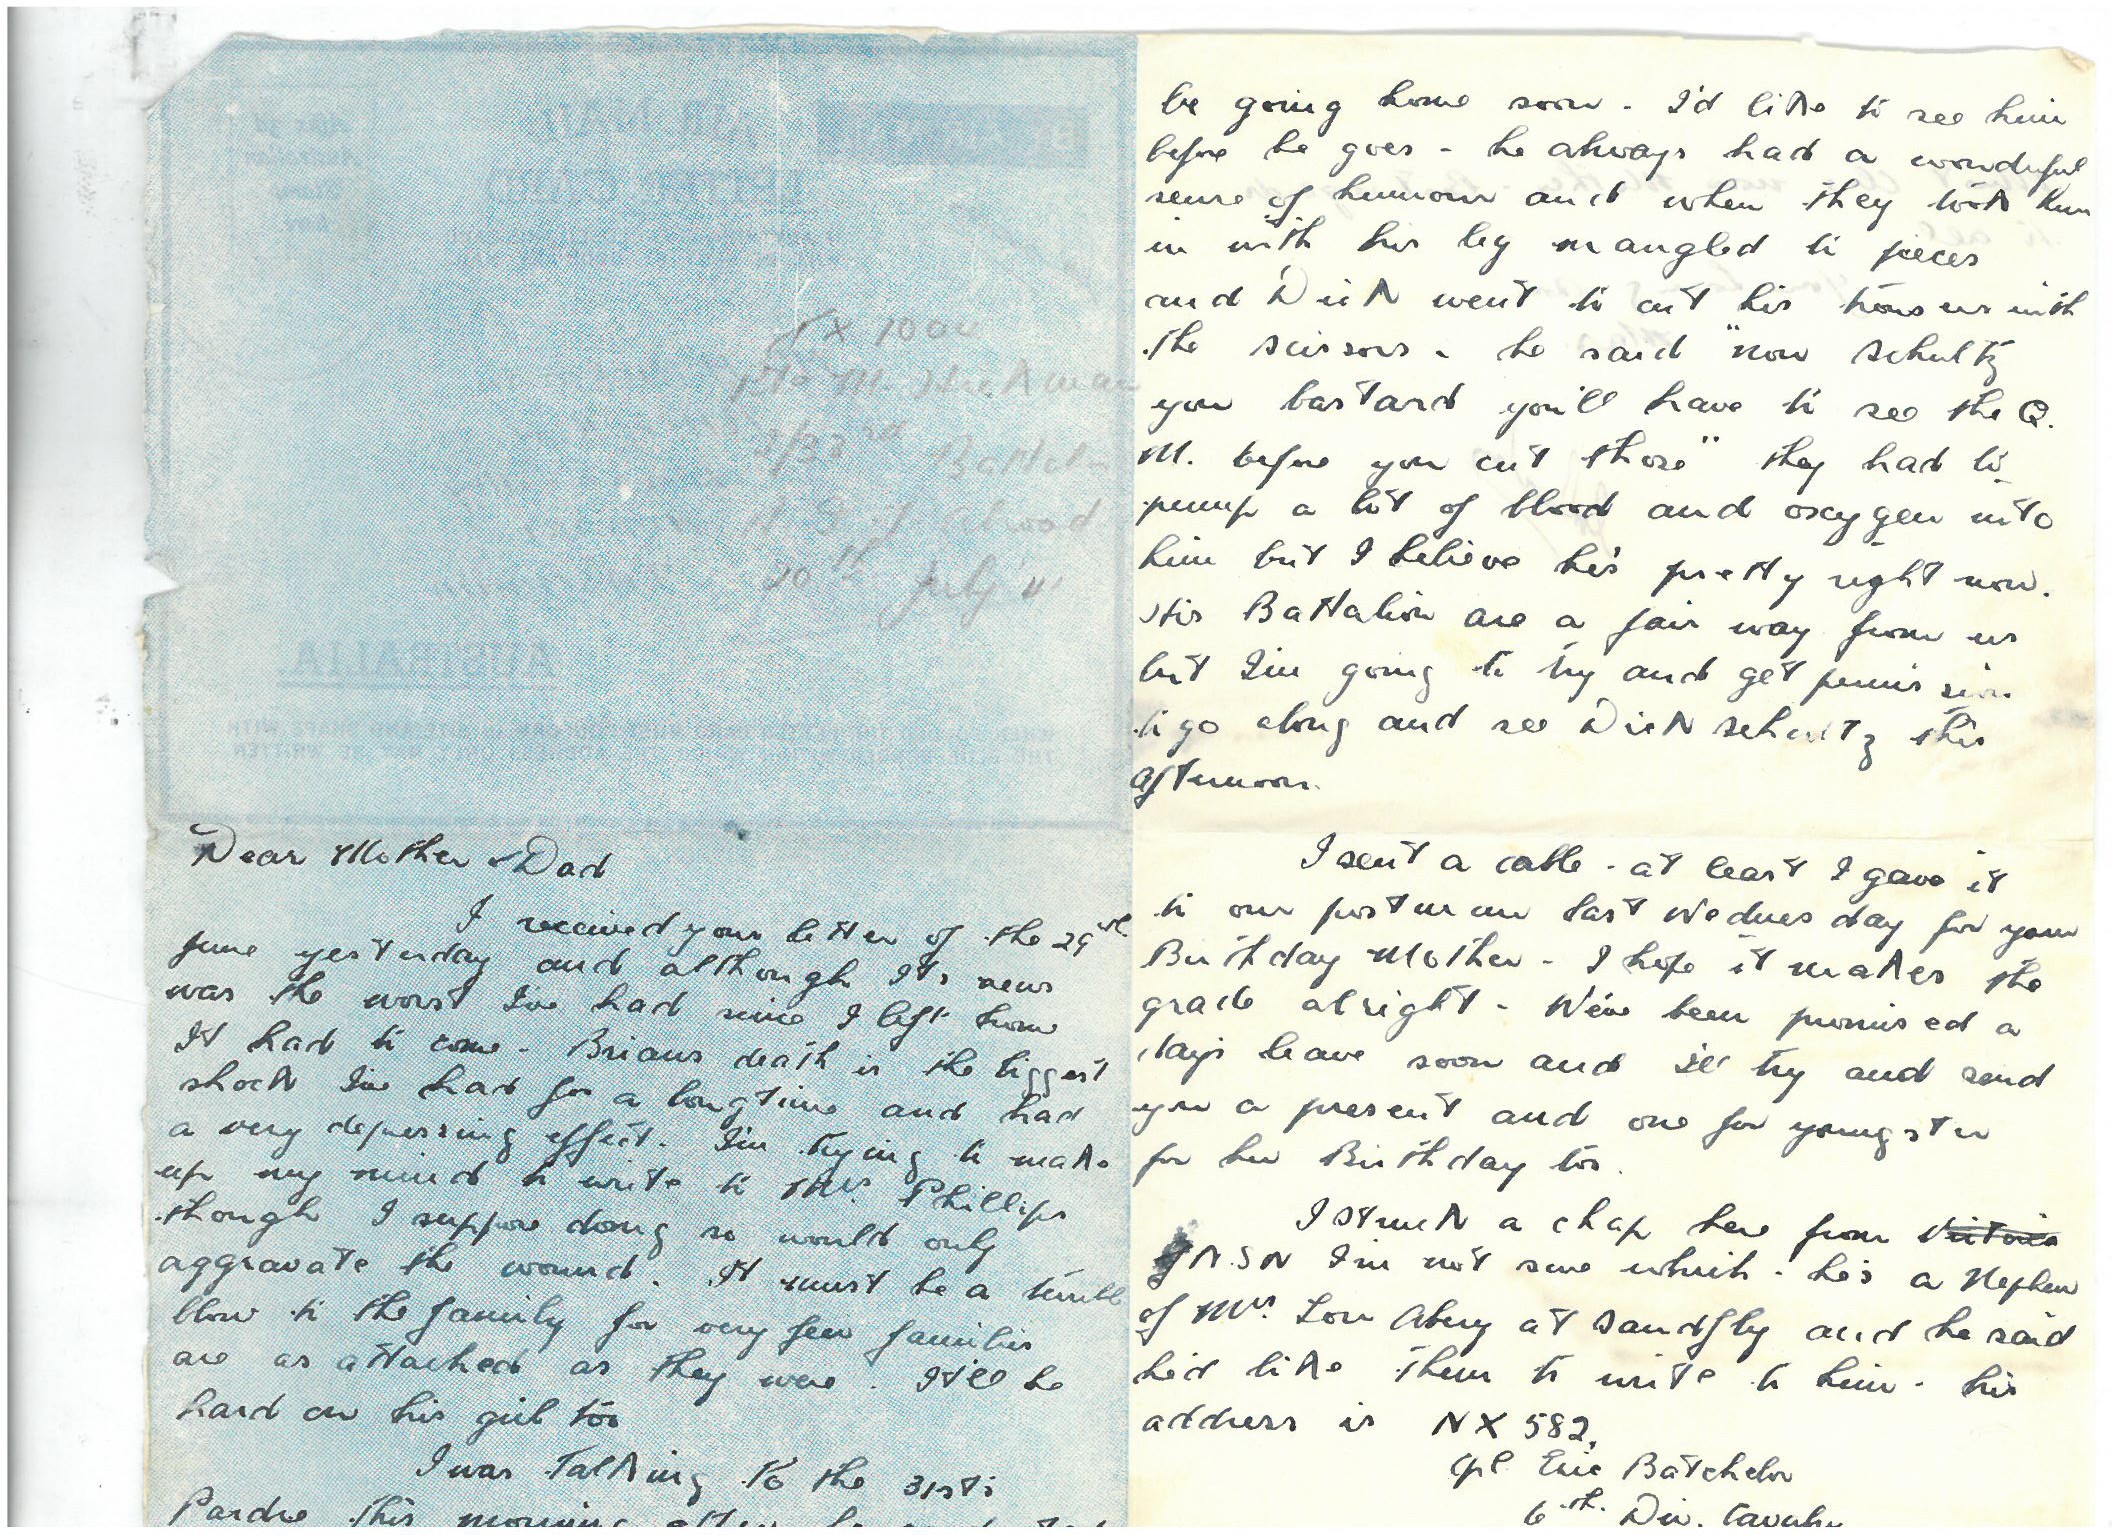 TX 1004
Pte M. Hickman
2/33rd Battalion
A.I.F. Abroad
20th July 41
Dear Mother & Dad
I received your letter of the 29th
June yesterday and although its news
was the worst I've had since I left home
It had to come - Brians death is the biggest
shock I've had for a long time and had
a very depressing effect. I'm trying to make
up my mind to write to Mrs Phillips
though I suppose doing so would only
aggravate the wound. It must be a terrible
blow to the family for very few families
are as attached as they were. It'll be
hard on his girl too
I was talking to the 31sts
Pardre this morning after he
be going home soon - I'd like to see him
before he goes - he always had a wonderful
sense of humour and when they took him
in with his leg mangled to pieces
and Dick went to cut his trousers with
the scissors - he said "now Schultz
you bastard you'll have to see the Q.
M. before you cut those" they had to
pump a lot of blood and oxygen into
him but I believe he's pretty right now.
His Battalion are a fair way from us
but I'm going to try and get permission
to go along and see Dick Schultz this
afternoon.
I sent a cable - at least I gave it
to our postman last Wednesday for your
Birthday Mother - I hope it makes the
grade alright - We've been promised a
days leave soon and I'll try and send
you a present and one for youngster
for her Birthday too.
I struck a chap here from Victoria
N.S.W I'm not sure which - he's a Nephew
of Mrs. Lou Abey at Sandfly and he said
he'd like them to write to him - his
address is NX 582,
Cpl. Eric Batchelor
6th. Div. Cavalry